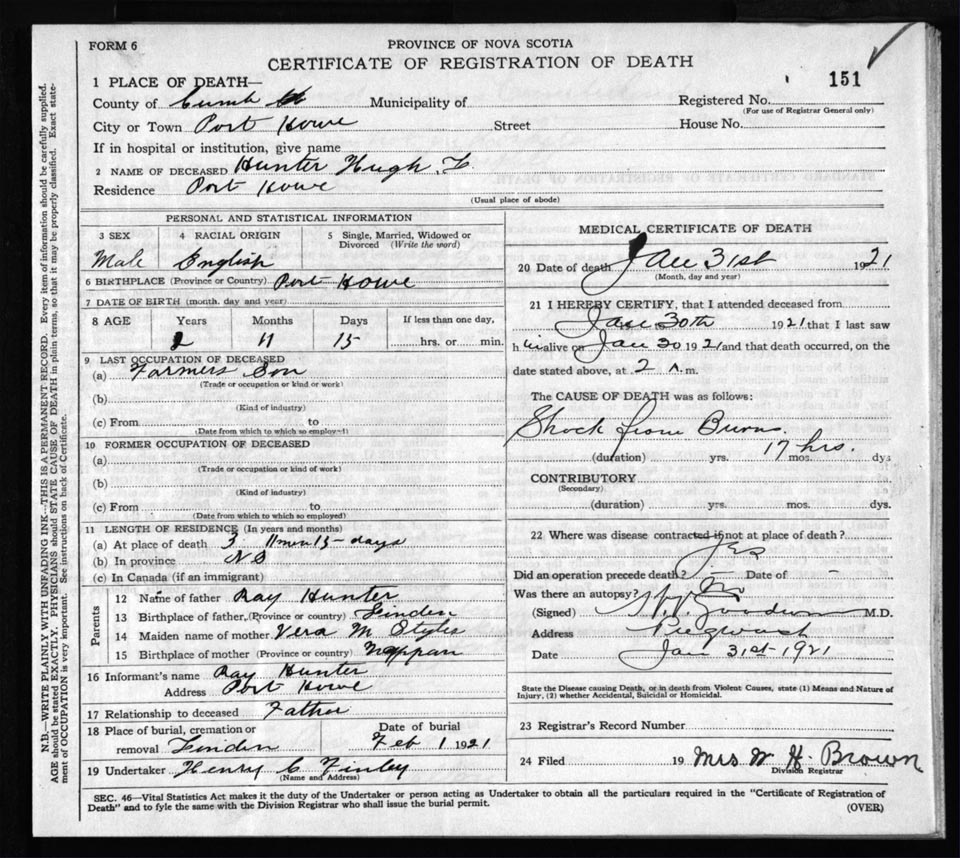 FORM 6
PROVINCE OF NOVA SCOTIA
CERTIFICATE OF REGISTRATION OF DEATH
151
1 PLACE OF DEATH—
County of Cumb Municipality of Registered No.
(For use of Registrar General only)
City or Town Port Howe Street House No.
If in hospital or institution, give name
2 NAME OF DECEASED Hunter Hugh. F.
Residence Port Howe
(Usual place of abode)
PERSONAL AND STATISTICAL INFORMATION
3 SEX 4 RACIAL ORIGIN 5 Single, Married, Widowed or
Divorced (Write the word)
Male English
6 BIRTHPLACE (Province or Country) Port Howe
7 DATE OF BIRTH (month, day and year)
8 AGE Years Months Days If less than one day,
2 11 15 hrs. or min.
9 LAST OCCUPATION OF DECEASED
(a) Farmers Son
(Trade or occupation or kind or work)
(b)
(Kind of industry)
(c) From to
(Date from which to which so employed)
10 FORMER OCCUPATION OF DECEASED
(a)
(Trade or occupation or kind of work)
(b)
(Kind of industry)
(c) From to
(Date from which to which so employed)
11 LENGTH OF RESIDENCE (In years and months)
(a) At place of death 3 11 mn 15 - days
(b) In province NS
(c) In Canada (if an immigrant)
Parents
12 Name of father Ray Hunter
13 Birthplace of father, (Province or country) Linden
14 Maiden name of mother Vera M. Styles
15 Birthplace of mother (Province or country) Nappan
16 Informant's name Ray Hunter
Address Port Howe
17 Relationship to deceased Father
18 Place of burial, cremation or Date of burial
removal Linden Feb 1 1921
19 Undertaker Henry C Finley
(Name and Address)
MEDICAL CERTIFICATE OF DEATH
20 Date of death Jan 31st 1921
(Month, day and year)
21 I HEREBY CERTIFY, that I attended deceased from
Jan 30th 1921 that I last saw
h im alive on Jan 30 1921 and that death occurred, on the
date stated above, at 2 A. m.
The CAUSE OF DEATH was as follows:
Shock from Burns.
17 hrs.
(duration) yrs. mos. dys
CONTRIBUTORY
(Secondary)
(duration) yrs. mos. dys.
22 Where was disease contracted if not at place of death?
Yes
Did an operation precede death? — Date of —
Was there an autopsy? No
(Signed) Goodwin M.D.
Address Pugwash
Date Jan 31st 1921
State the Disease causing Death, or in death from Violent Causes, state (1) Means and Nature of
Injury, (2) whether Accidental, Suicidal or Homicidal.
23 Registrar's Record Number
24 Filed 19 Mrs W H. Brown
Division Registrar
SEC. 46—Vital Statistics Act makes it the duty of the Undertaker or person acting as Undertaker to obtain all the particulars required in the "Certificate of Registration of
Death" and to fyle the same with the Division Registrar who shall issue the burial permit.
(OVER)
N.B.—WRITE PLAINLY WITH UNFADING INK—THIS IS A PERMANENT RECORD. Every item of information should be carefully supplied.
AGE should be stated EXACTLY. PHYSICIANS should STATE CAUSE OF DEATH in plain terms, so that it may be properly classified. Exact state-
ment of OCCUPATION is very important. See instructions on back of Certificate.